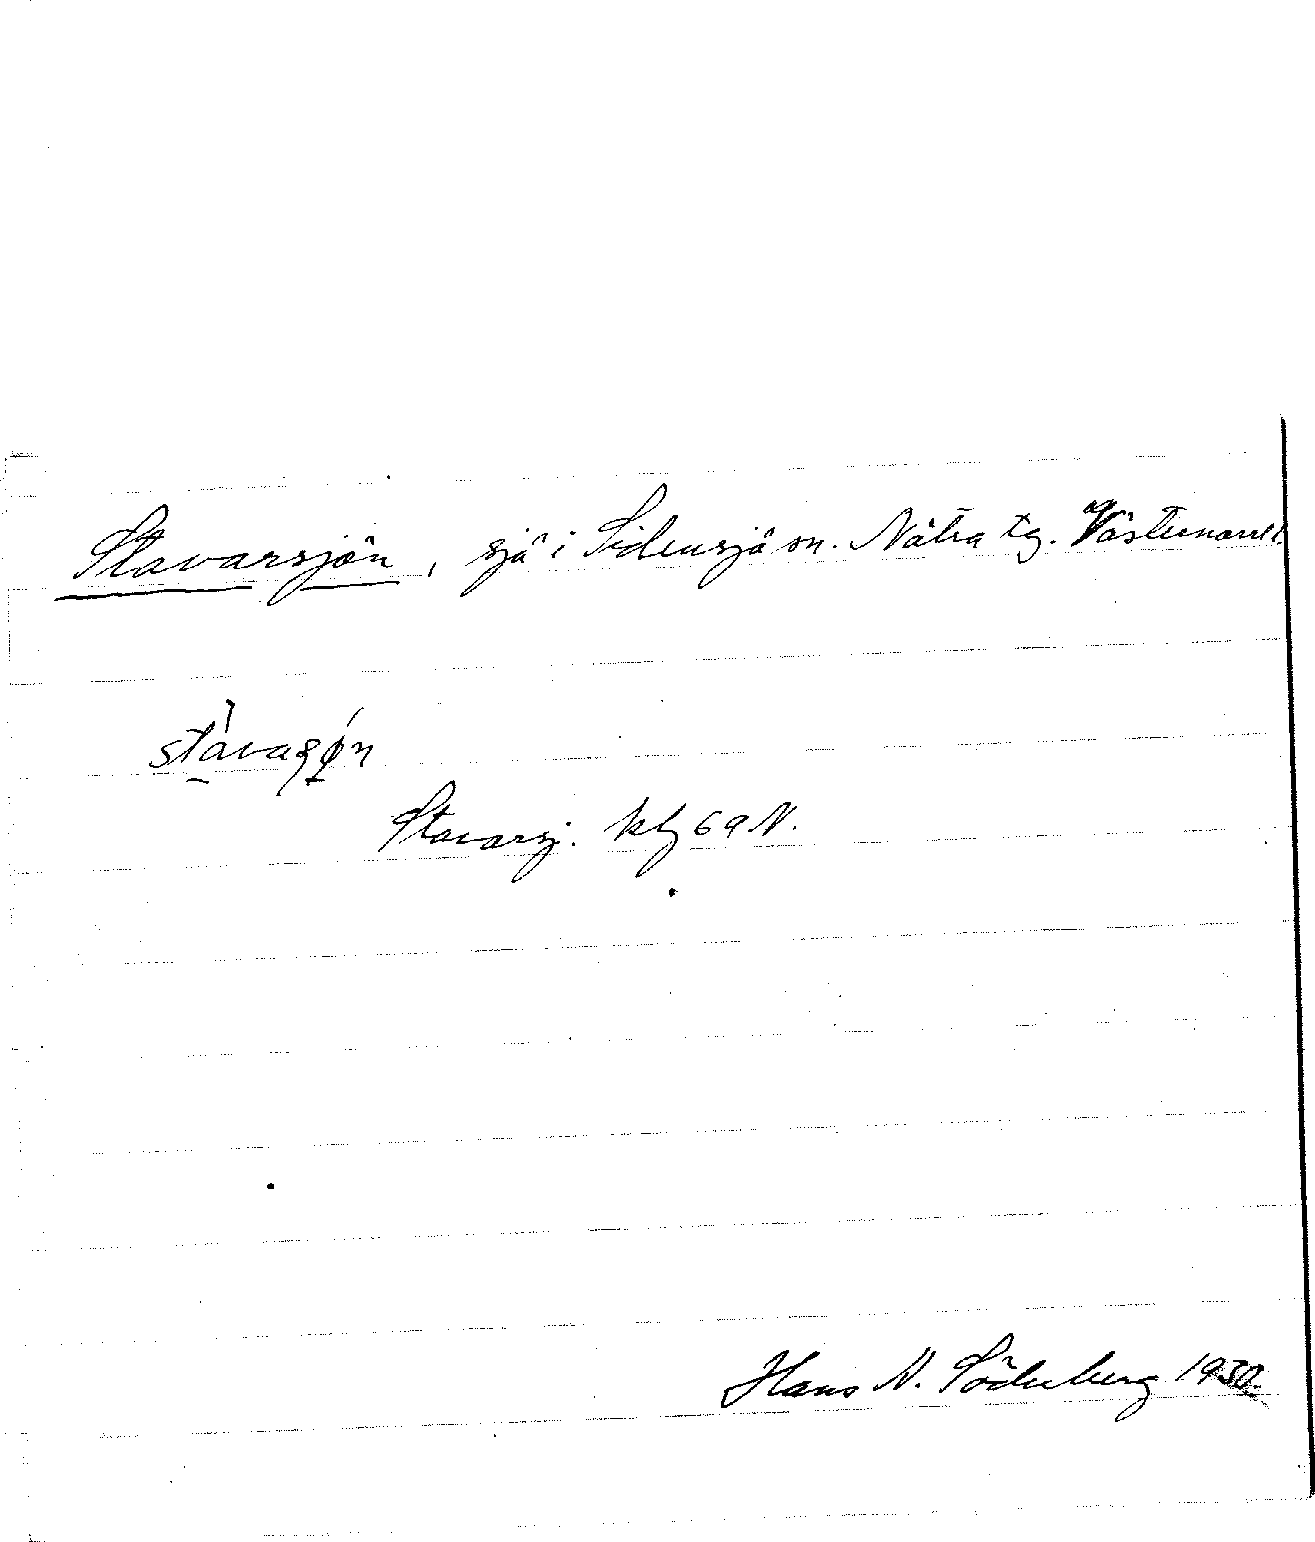 Stavarsjön, sjö i Sidensjö sn. Nätra tg. Västernorrl.
stàvaʂǿn
Stavarsj. kbl 69 N.
Hans N. Söderberg 1930.